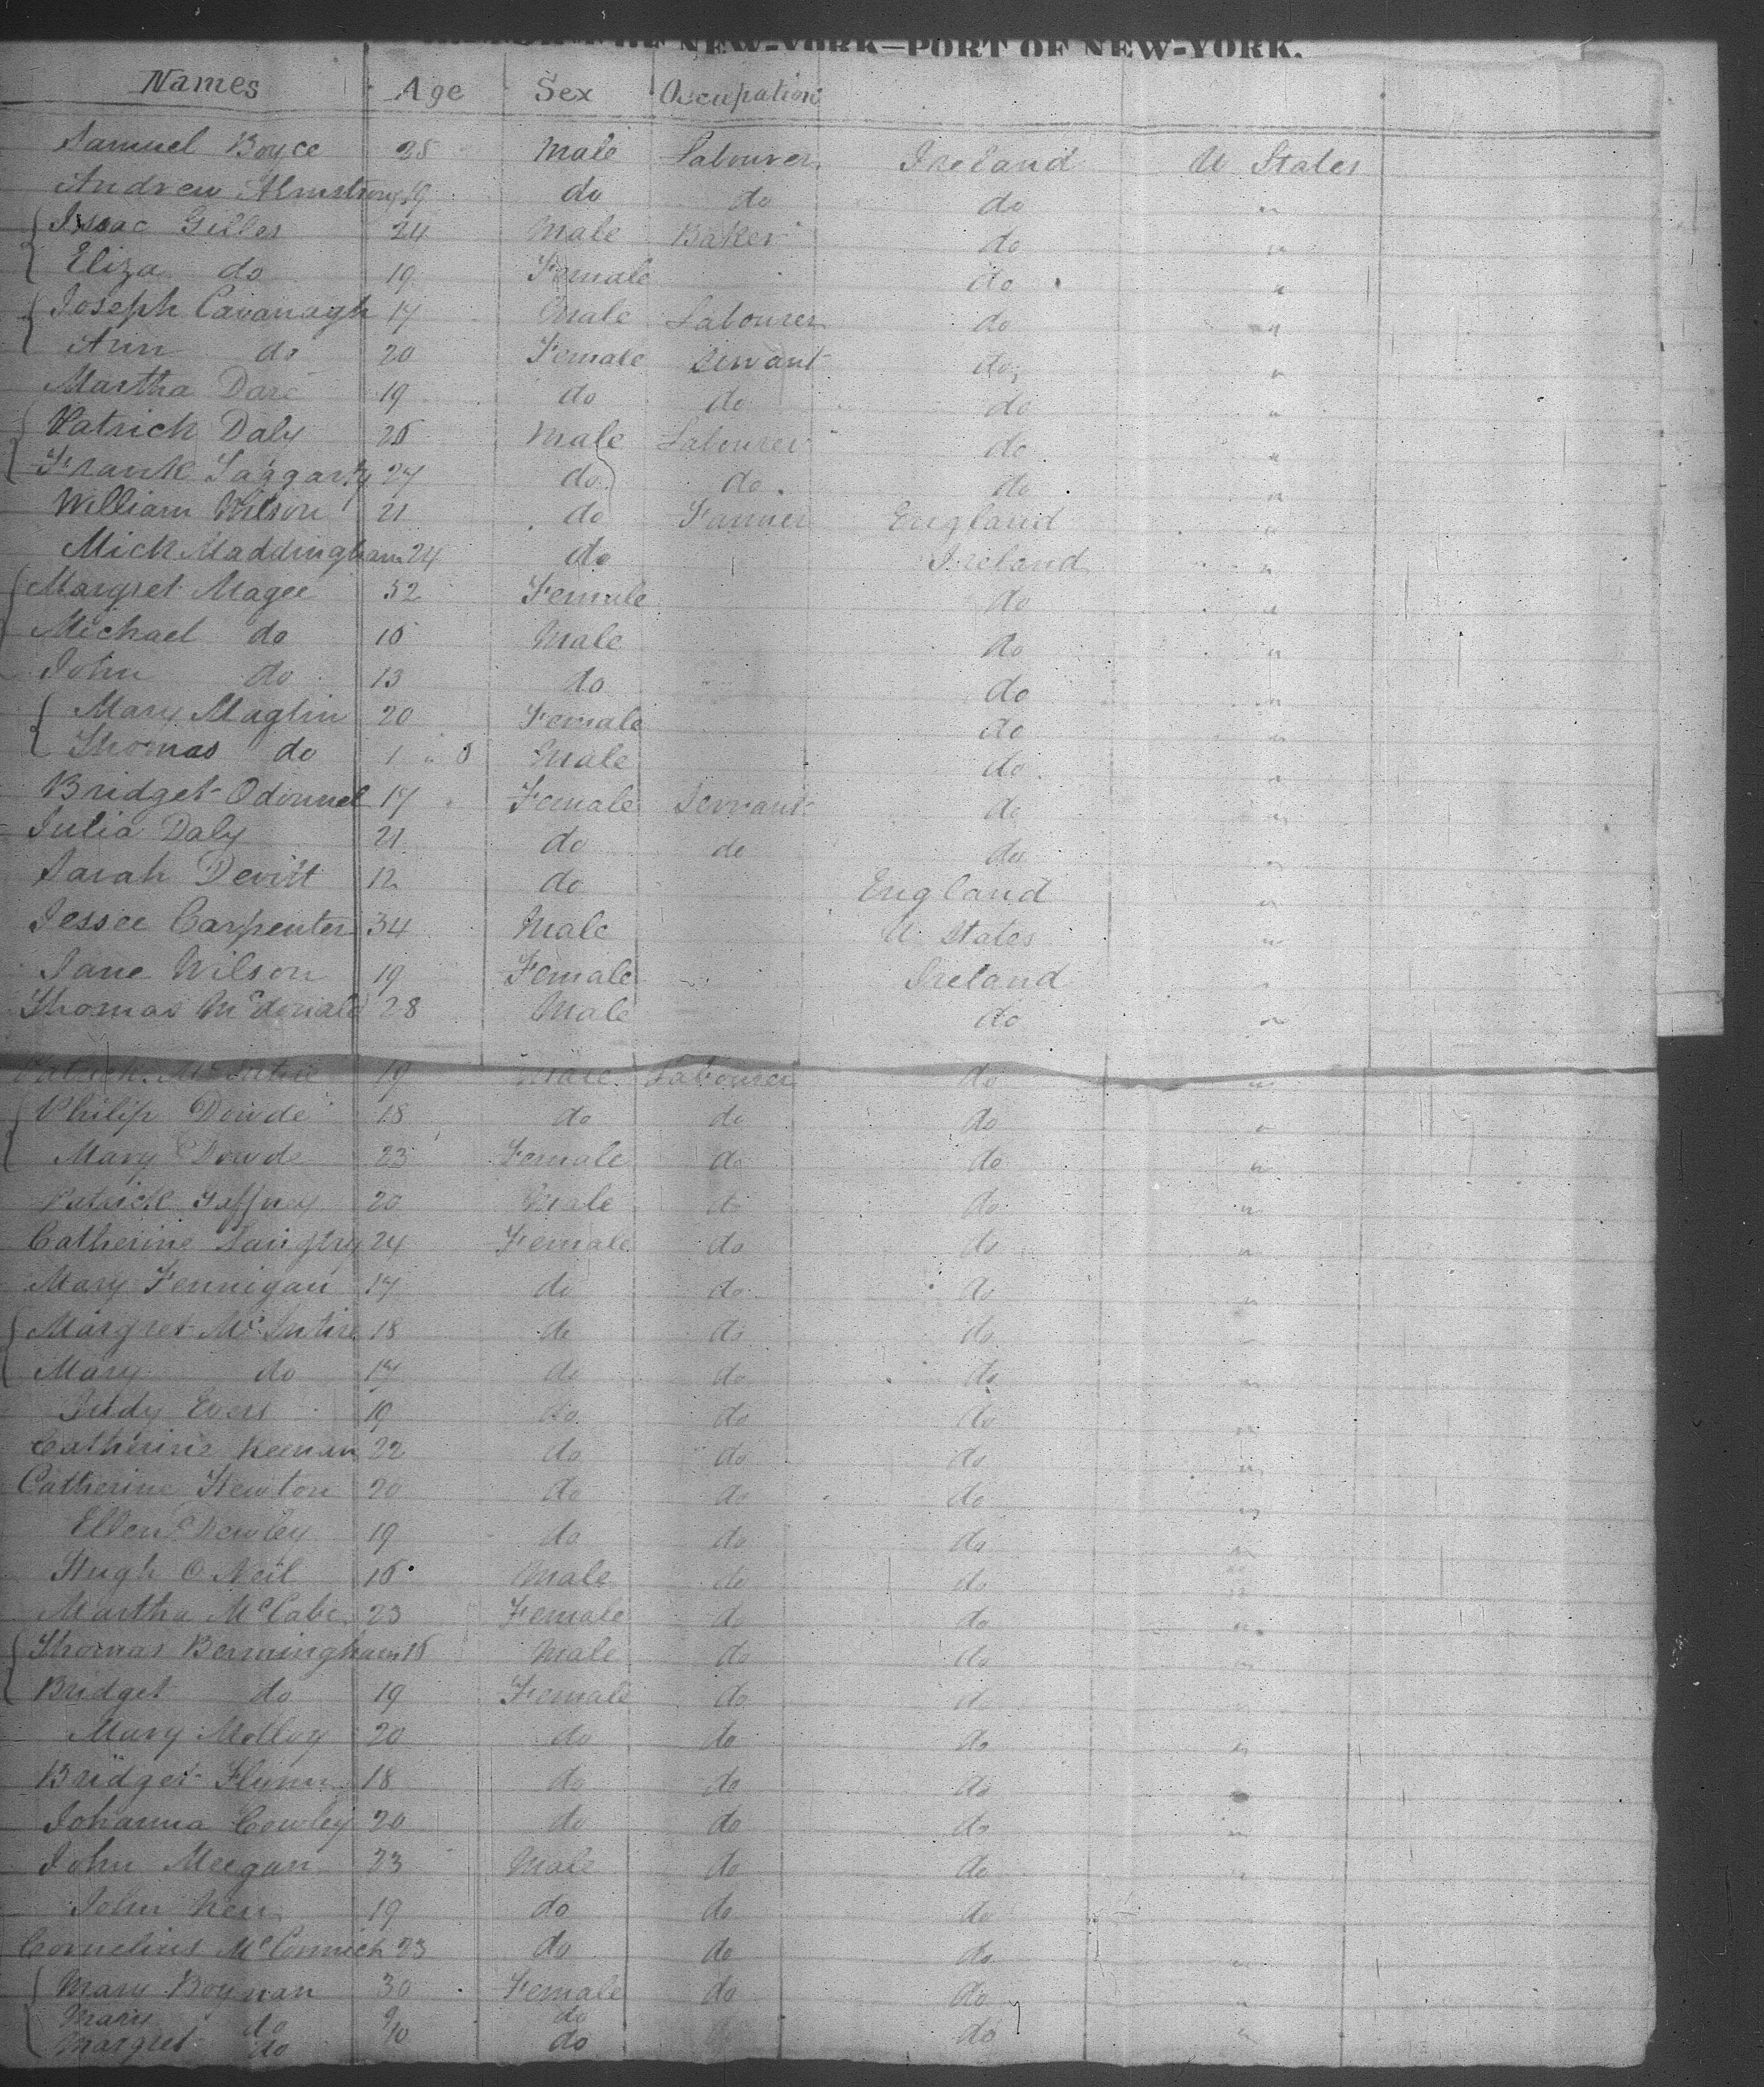 NEW-YORK—PORT OF NEW-YORK.
Names Age Sex Occupation
Samuel Boyce 25 Male Labourer Ireland U States
Andrew Armstrong 19 do do do "
Isaac Gilles 24 Male Baker do "
Eliza do 19 Female do "
Joseph Cavanagh 17 Male Labourer do "
Ann do 20 Female Servant do "
Martha Dare 19 do do do "
Patrick Daly 25 Male Labourer do "
Frank Taggarty 27 do do do "
William Wilson 21 do Farmer England "
Mick Maddingham 24 do Ireland "
Margret Magee 32 Female do "
Michael do 15 Male do "
John do 13 do do "
Mary Maglin 20 Female do "
Thomas do 1 " 8 Male do "
Bridget Odonnel 17 Female Servant do "
Julia Daly 21 do do do "
Sarah Devitt 12 do England "
Jessee Carpenter 34 Male U States "
Jane Wilson 19 Female Ireland "
Thomas McDonald 28 Male do "
Patrick McIntire 19 Male Labourer do "
Philip Dowde 18 do do do "
Mary Dowde 23 Female do do "
Patrick Gaffney 20 Male do do "
Catherine 24 Female do do "
Mary Fennigan 17 do do do "
Margret McIntire 18 do do do "
Mary do 17 do do do "
Judy Evers 19 do do do "
Catherine Keenan 22 do do do "
Catherine Newton 20 do do do "
Ellen 19 do do do "
Hugh O Neil 15 Male do do "
Martha McCabe 23 Female do do "
Thomas Bermingham 15 Male do do "
Bridget do 19 Female do do "
Mary Molloy 20 do do do "
Bridget Flynn 18 do do do "
Johanna Cowley 20 do do do "
John Meegan 23 Male do do "
John Kerr 19 do do do "
Cornelius McCormick 23 do do do "
Mary Boynan 30 Female do do "
Mary do do
Margret do do do "